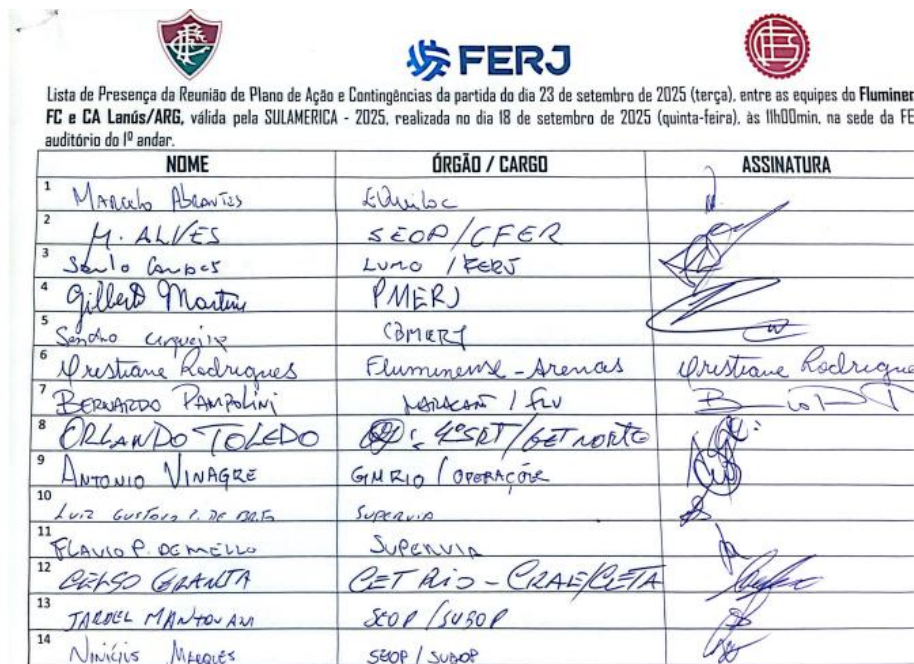 FERJ
Lista de Presença da Reunião de Plano de Ação e Contingências da partida do dia 23 de setembro de 2025 (terça), entre as equipes do Fluminen
FC e CA Lanús/ARG, válida pela SULAMERICA - 2025, realizada no dia 18 de setembro de 2025 (quinta-feira), às 11h00min, na sede da FE
auditório do 1º andar.
NOME ÓRGÃO / CARGO ASSINATURA
1 Marcelo Abrantes EQuiloc
2 M. ALVES SEOP/CFER
3 / FERJ
4 Gilberto Martins PMERJ
5 Sandro Cerqueira CBMERJ
6 Cristiane Rodrigues Fluminense - Arenas Cristiane Rodrigue
7 BERNARDO PAMPOLINI MARACANÃ / FLU
8 ORLANDO TOLEDO 4ªSRT/GET NORTE
9 ANTONIO VINAGRE GMRIO / OPERAÇÕES
10 LUIZ GUSTAVO P. DE BRITO SUPERVIA
11 FLAVIO P. DE MELLO SUPERVIA
12 CELSO GRANJA CET RIO - CRAE/CETA
13 JARDEL MANTOVANI SEOP / SUBOP
14 Vinicius Marques SEOP / SUBOP